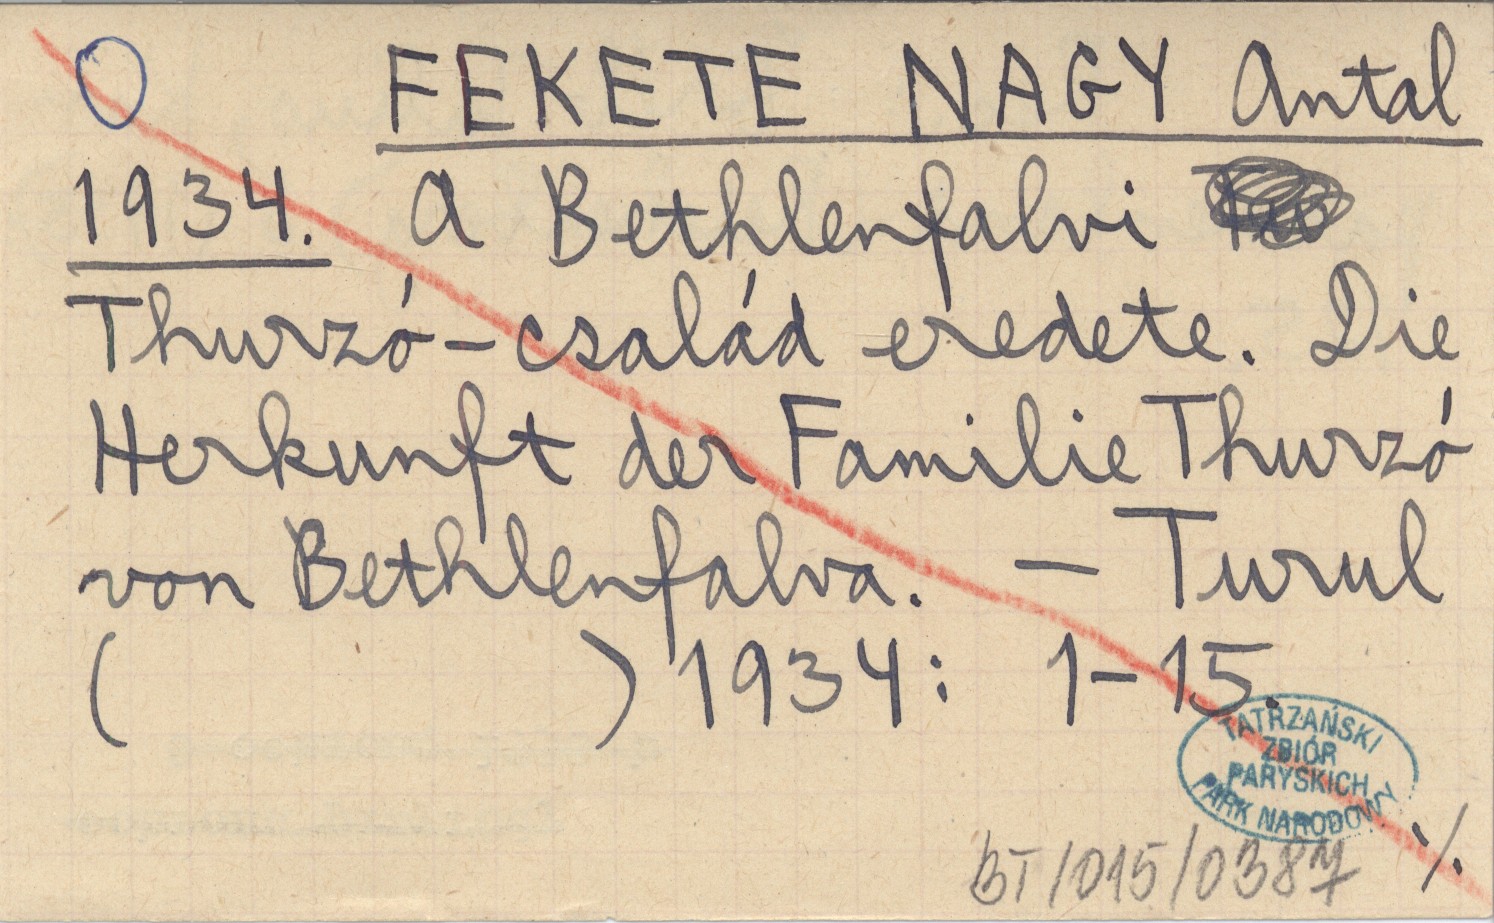 FEKETE NAGY Antal
1934. A Bethlenfalvi
Thurzó-család eredete. Die
Herkunft der Familie Thurzó
von Bethlenfalva. — Turul
( ) 1934: 1-15.
TATRZAŃSKI
ZBIÓR
PARYSKICH
PARK NARODOWY
BT/015/0387
·/.